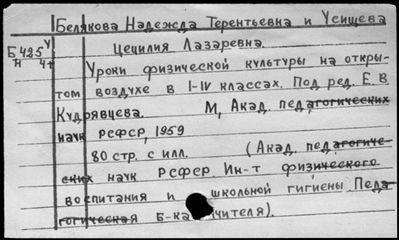 Белякова Надежда Терентьевна и Усищева
Б425 У Цецилия Лазаревна.
н 4+
Уроки физической культуры на откры-
том воздухе в I-IV классах. Под ред. Е.В.
Кудрявцева. М, Акад. педагогических
наук РСФСР, 1959
80 стр. с илл. (Акад. педагогиче-
ских наук РСФСР. Ин-т физического
воспитания и школьной гигиены. Педа
гогическая Б-ка учителя).